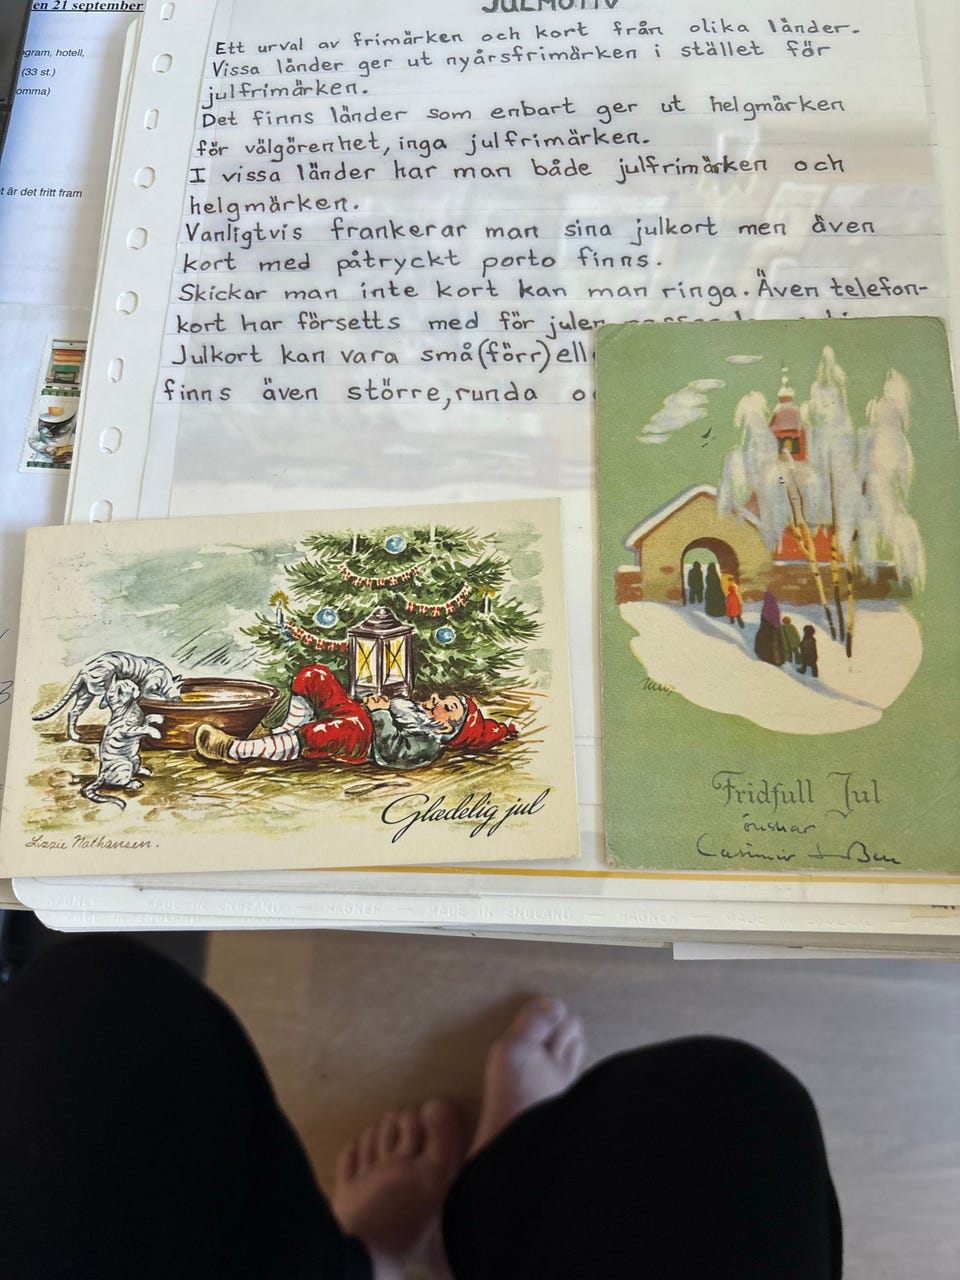 en 21 september
gram, hotell,
(33 st.)
omma)
t är det fritt fram
JULMOTIV
Ett urval av frimärken och kort från olika länder.
Vissa länder ger ut nyårsfrimärken i stället för
julfrimärken.
Det finns länder som enbart ger ut helgmärken
för välgörenhet, inga julfrimärken.
I vissa länder har man både julfrimärken och
helgmärken.
Vanligtvis frankerar man sina julkort men även
kort med påtryckt porto finns.
Skickar man inte kort kan man ringa. Även telefon-
kort har försetts med för julen
Julkort kan vara små (förr) ell
finns även större, runda o
Glædelig jul
Lizzie Nathansen.
Fridfull Jul
önskar
Casimir
MADE IN ENGLAND — RAGNER — MADE IN ENGLAND — RAGNER — MADE IN